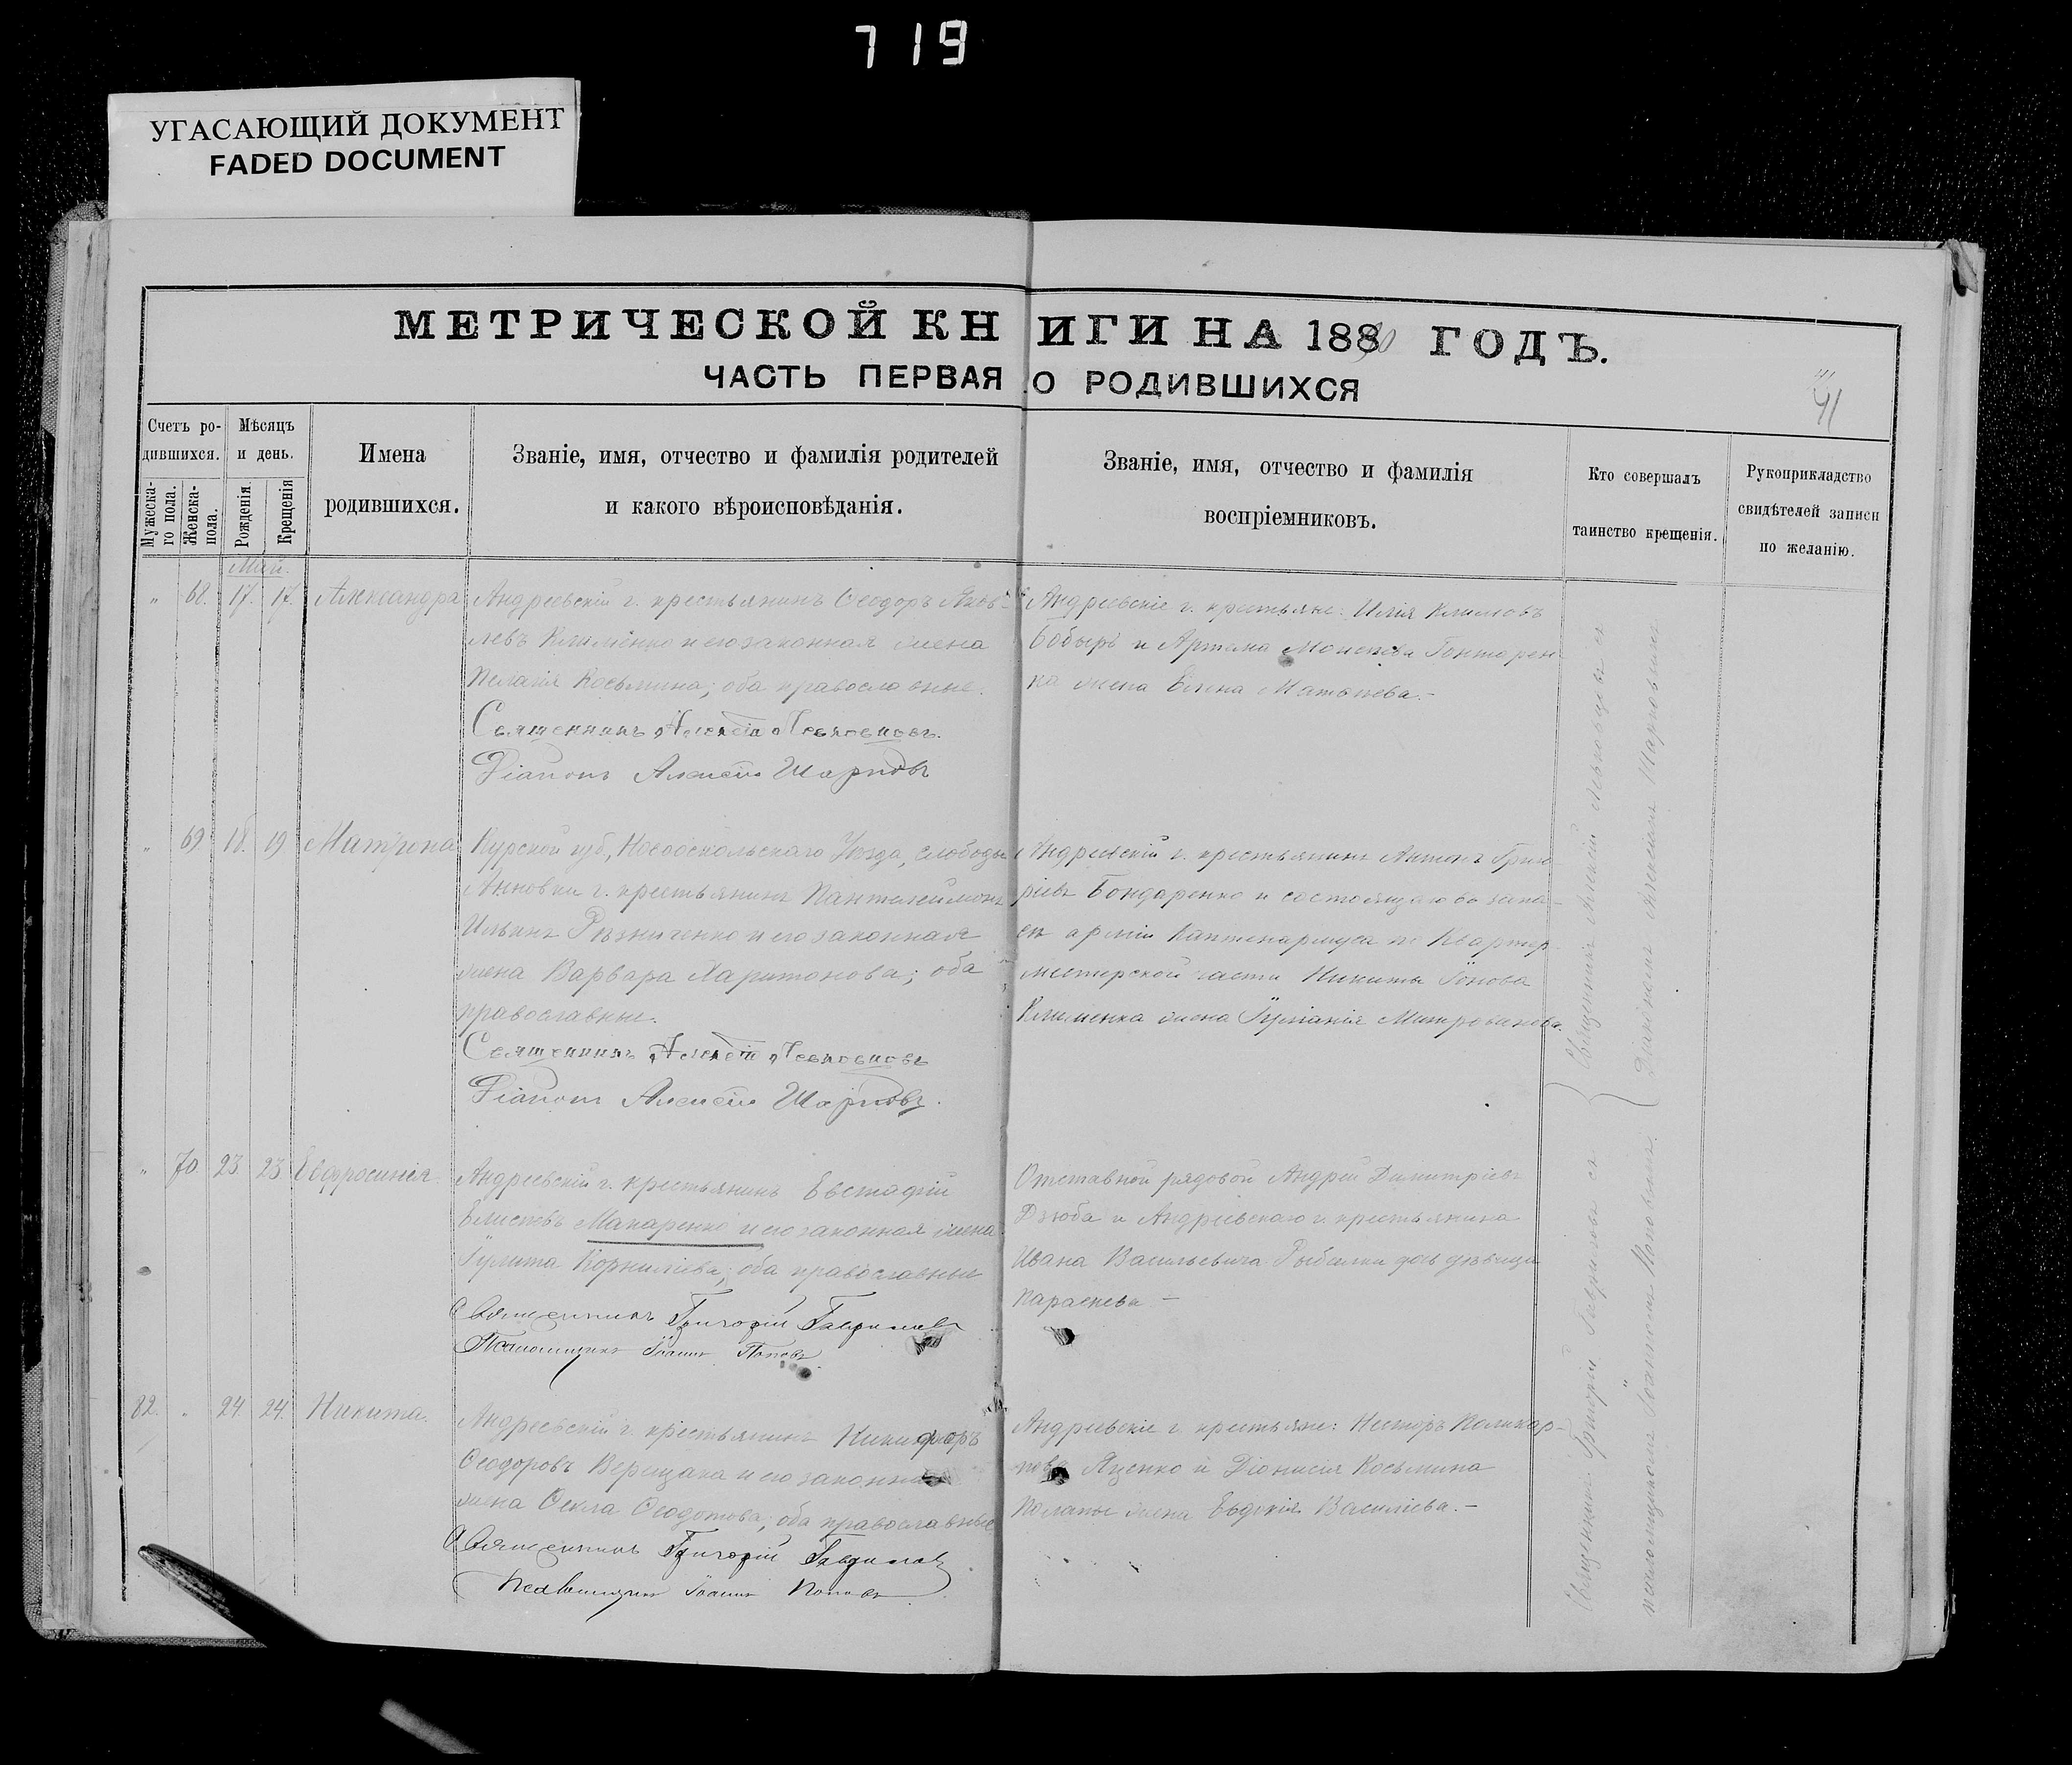 719
УГАСАЮЩИЙ ДОКУМЕНТ
FADED DOCUMENT
МЕТРИЧЕСКОЙ КНИГИ НА 1890 ГОДЪ.
ЧАСТЬ ПЕРВАЯ О РОДИВШИХСЯ
41
41
Счетъ ро-
дившихся.
Мужеска-
го пола.
Женска-
пола.
Мѣсяцъ
и день.
Рожденія.
Крещенія
Имена
родившихся.
Званіе, имя, отчество и фамилія родителей
и какого вѣроисповѣданія.
Званіе, имя, отчество и фамилія
воспріемниковъ.
Кто совершалъ
таинство крещенія.
Рукоприкладство
свидѣтелей записи
по желанію.
Май.
„ 68. 17. 17. Александра
Андреевскій г. крестьянинъ Ѳеодоръ Яков-
левъ Клименко и его законная жена
Пелагія Косьмина; оба православные.
Священникъ Алексій
Діаконъ Алексій Шарповъ
Андреевскіе г. крестьяне: Илія Климовъ
Бобырь и Артема Моисеева Гонтарен-
ка жена Елена Матѳеева.-
„ 69. 18. 19 Матрона
Курской губ., Новооскольскаго Уѣзда, слободы
Анновки г. крестьянинъ Пантелеймонъ
Ильинъ Рѣзниченко и его законная
жена Варвара Харитонова; оба
православные.
Священникъ Алексій
Діаконъ Алексій Шарповъ.
Андреевскій г. крестьянинъ Антонъ Григо-
ріевъ Бондаренко и состоящаго въ запа-
сѣ арміи Каптенармуса по Квартир-
мистерской части Никиты Іонова
Клименка жена Іуліанія Митрофанова.
„ 70. 23. 23 Евфросинія.
Андреевскій г. крестьянинъ Евстафій
Елисѣевъ Макаренко и его законная жена
Іулита Корниліева; оба православные
Священникъ Григорій Гавриловъ
Псаломщикъ Іоаннъ Поповъ.
Отставной рядовой Андрей Димитріевъ
Дзюба и Андреевскаго г. крестьянина
Ивана Васильевича Рыбалки дочь дѣвица
Параскева -
82. „ 24. 24. Никита.
Андреевскій г. крестьянинъ Никифоръ
Ѳеодоровъ Верещака и его законная
жена Ѳекла Ѳеодотова; оба православные
Священникъ Григорій Гавриловъ
Псаломщикъ Іоаннъ Поповъ.
Андреевскіе г. крестьяне: Несторъ Поликар-
повъ Яценко и Діонисія Косьмина
жена Евдокія Василіева.-
Священникъ Алексій съ
Діакономъ Алексіемъ Шарповымъ
Священникъ Григорій Гавриловъ съ
псаломщикомъ Іоанномъ Поповымъ.